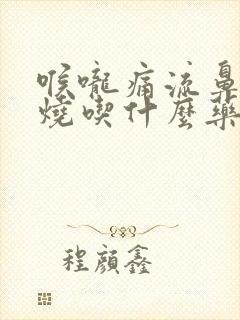 喉嚨痛流鼻
燒喫什麼藥
程顏鑫